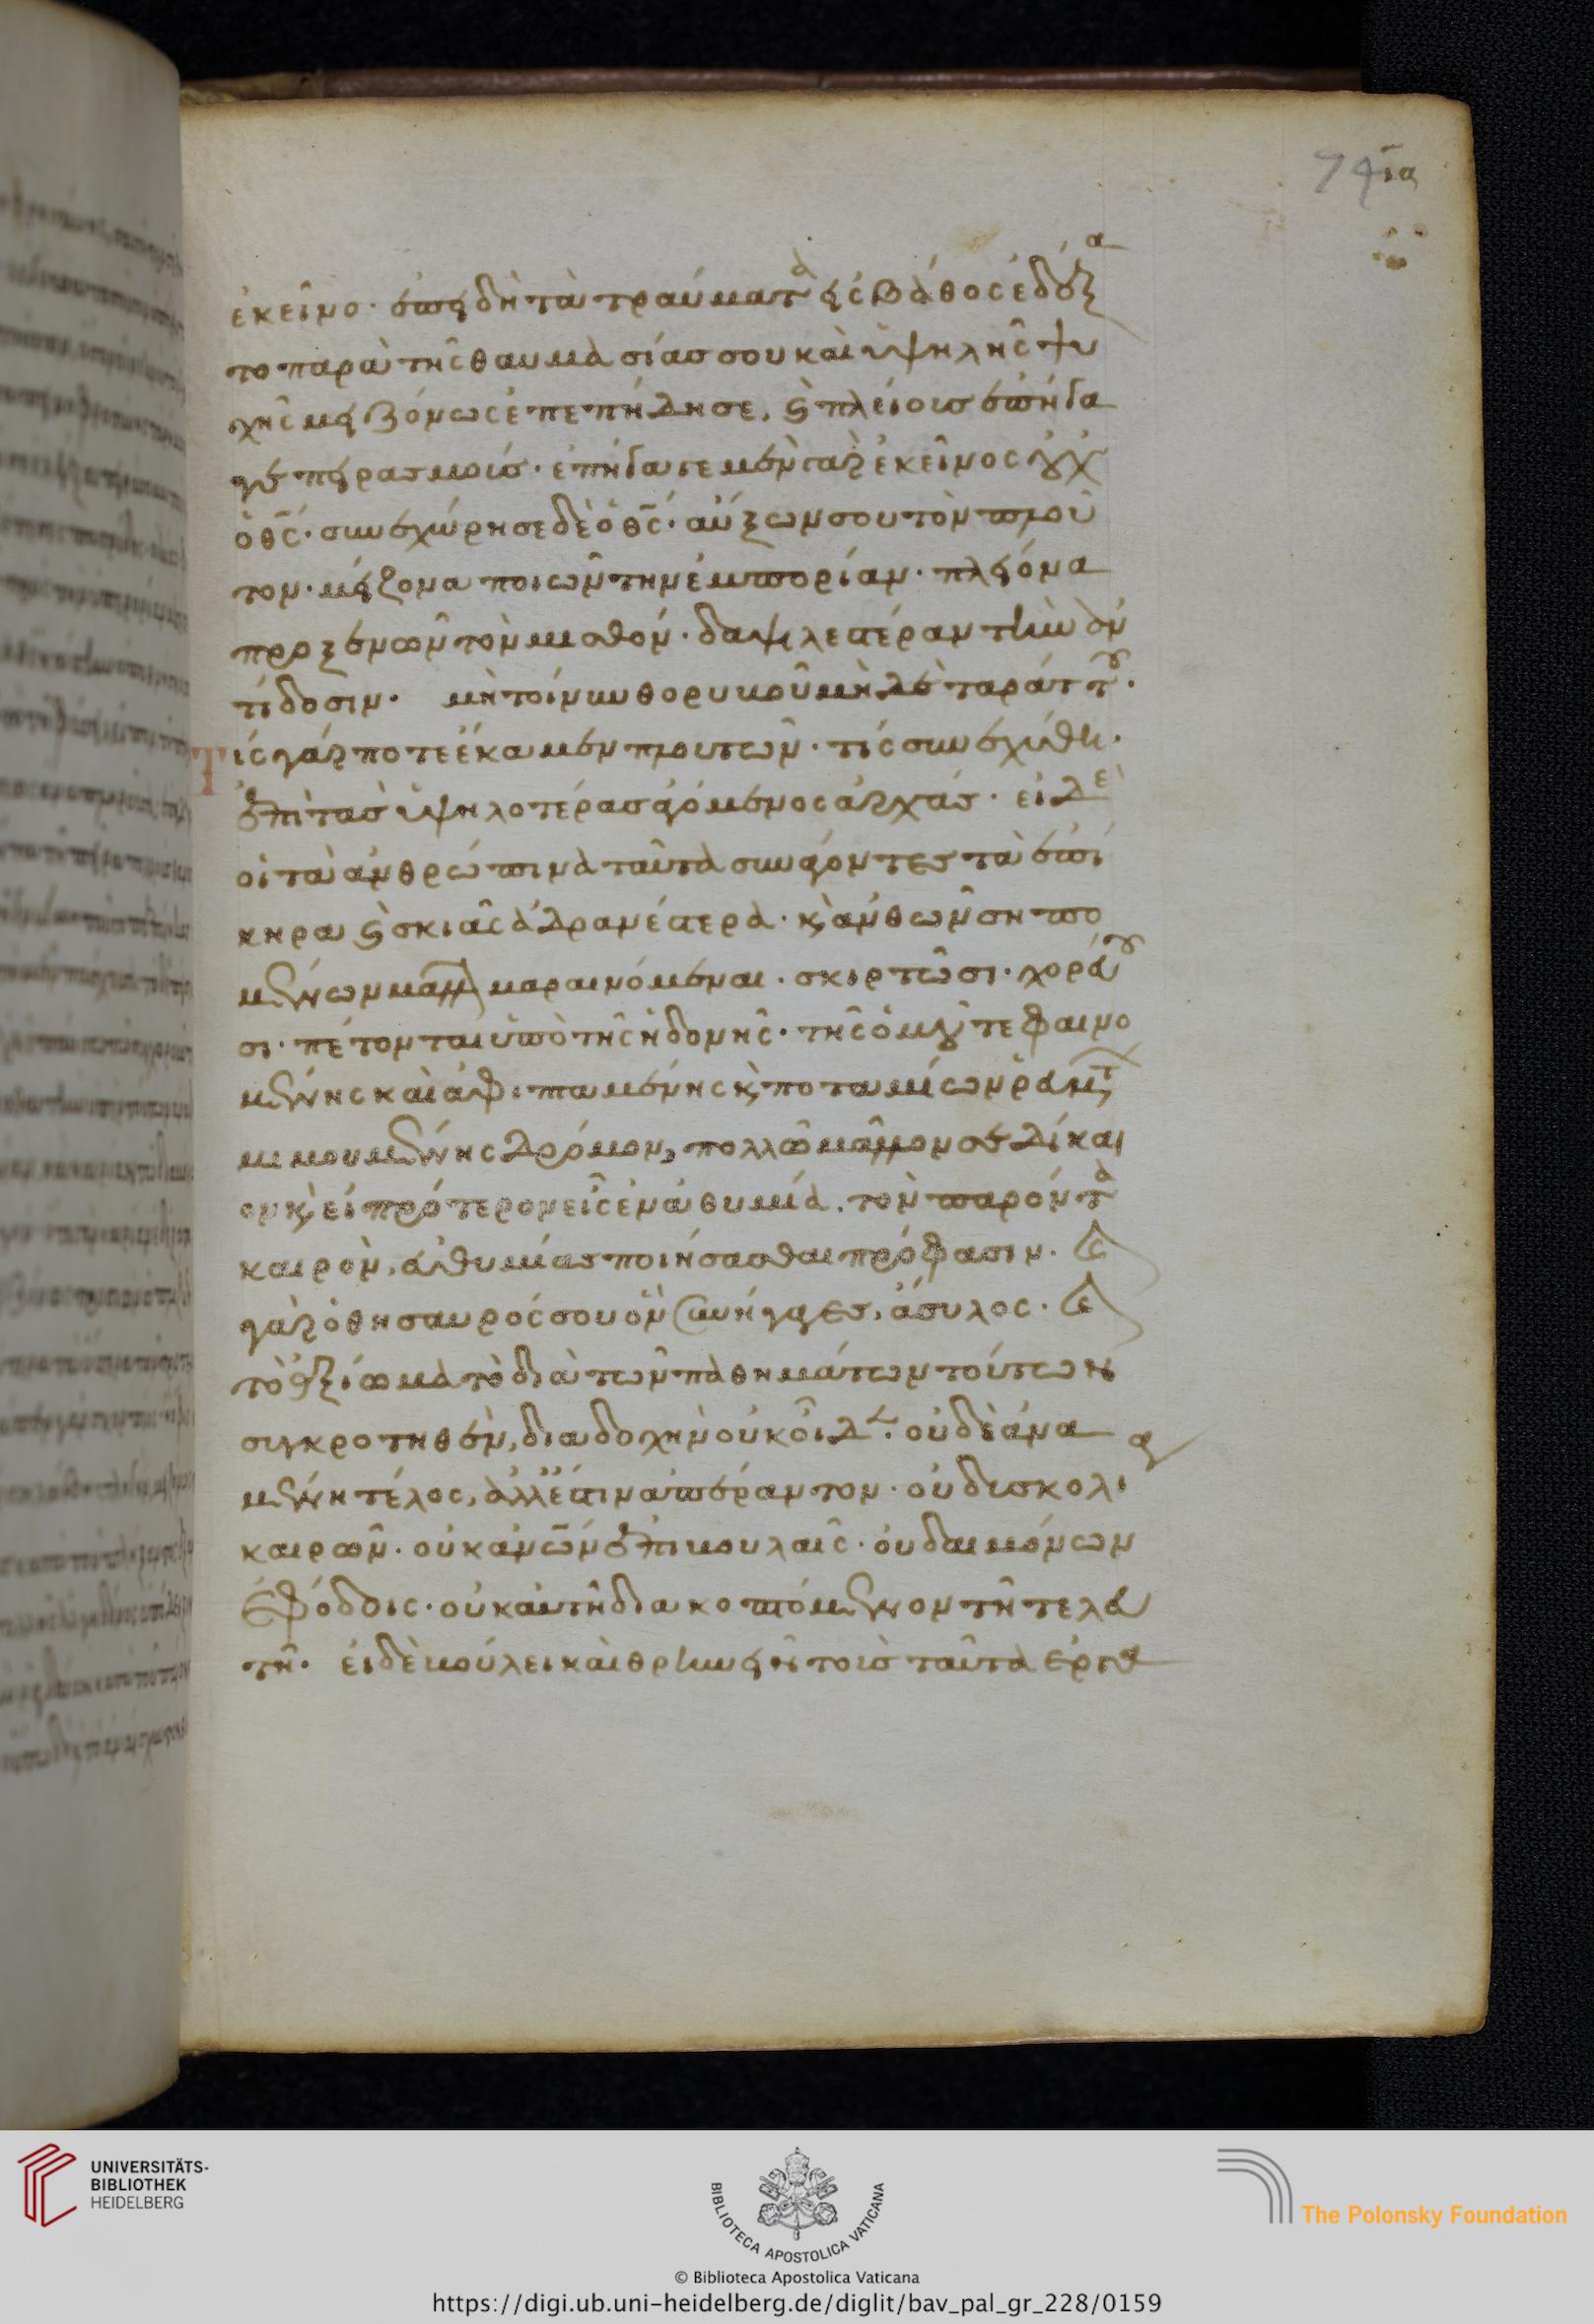 ἐκεῖνο· ἐπεὶ δὴ τὰ τραύματα εἰς βάθος ἐδέξα
το παρὰ τῆς θαυμασίας σου καὶ ὑψηλῆς ψυ
χῆς μειζόνως ἐπεπήδησε, καὶ πλείοις ἐπῆγα
γε πειρασμοὺς· ἐπήγαγε μὲν γὰρ ἐκεῖνος οὐχ
ὁ θς· συνεχώρησε δὲ ὁ θς· αὔξων σου τὸν πλοῦ
τον· μείζονα ποιῶν τὴν ἐμπορίαν· πλείονα
προξενῶν τὸν μισθόν· δαψιλεστέραν τὴν ἀν
τίδοσιν· μὴ τοίνυν θορυβοῦ μηδὲ ταράττου·
Τίς γάρ ποτε ἔκαμεν πλουτῶν· τίς συνεχύθη·
ἐπὶ τὰς ὑψηλοτέρας ἀγόμενος ἀρχάς· εἰ δὲ
οἱ τὰ ἀνθρώπινα ταῦτα συνάγοντες τὰ ἐπί
κηρα καὶ σκιᾶς ἀδρανέστερα· καὶ ἀνθῶν σηπο
μένων μᾶλλον μαραινόμεναι· σκιρτῶσι· χορεύου
σι· πέτονται ὑπὸ τῆς ἡδονῆς· τῆς ὁμοῦ τε φαινο
μένης καὶ ἀφιπταμένης καὶ ποταμίων ῥευμάτων
μιμουμένης δρόμον, πολλῶ μᾶλλον σὲ δίκαι
ον καὶ εἰ πρότερον εἶς ἐν ἀθυμία, τὸν παρόντα
καιρὸν, εὐθυμίας ποιήσασθαι πρόφασιν· καὶ
γὰρ ὁ θησαυρός σου ὃν συνήγαγες, ἄσυλος· καὶ
τὸ ἀξίωμα τὸ διὰ τῶν παθημάτων τούτων
συγκροτηθὲν, διαδοχὴν οὐκ οἶδεν· οὐδὲ ἀνα
μένει τέλος, ἀλλ' ἔστιν ἀπέραντον· οὐ δυσκολία
καιρῶν· οὐκ ἀνων ἐπιβουλαῖς· οὐ δαιμόνων
ἐφόδοις· οὐκ αὐτῆ διακοπτόμενον τῆ τελευ
τῆ· εἰ δὲ βούλει καὶ θρηνεῖν τοὺς ταῦτα ἐργα
74 ια
UNIVERSITÄTS-
BIBLIOTHEK
HEIDELBERG
BIBLIOTECA APOSTOLICA VATICANA
The Polonsky Foundation
© Biblioteca Apostolica Vaticana
https://digi.ub.uni-heidelberg.de/diglit/bav_pal_gr_228/0159